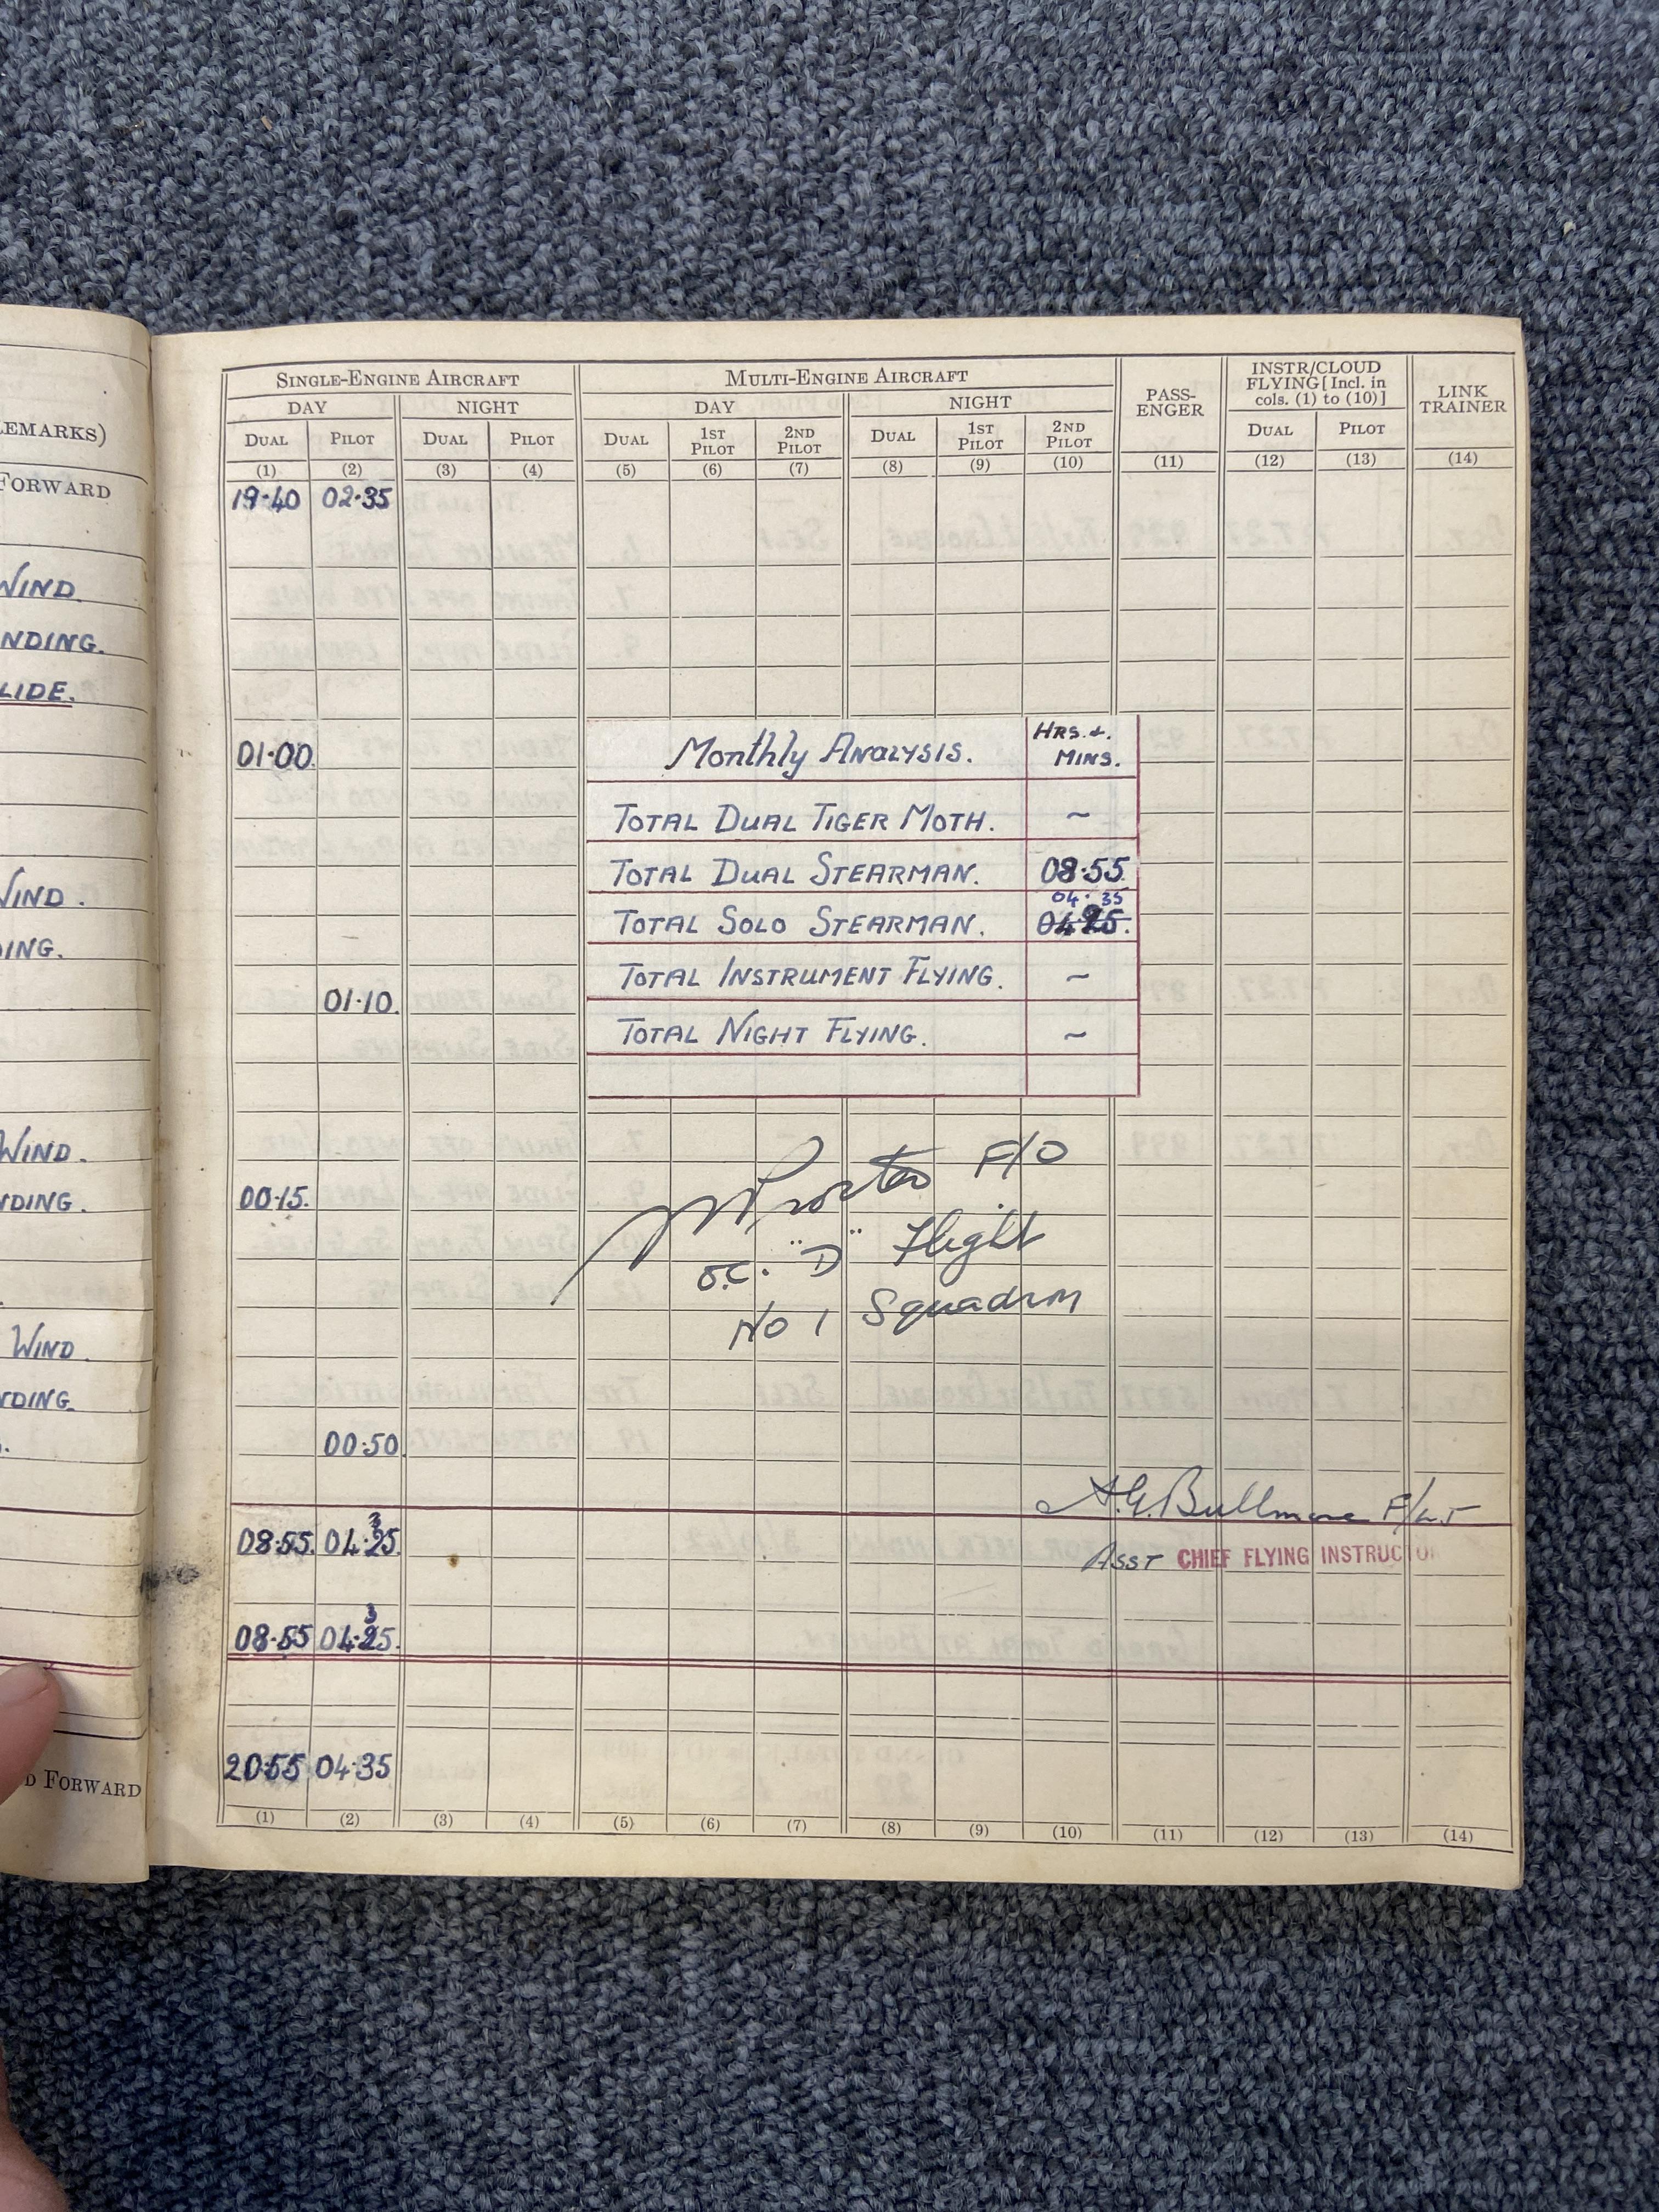 REMARKS)
FORWARD
WIND.
NDING.
LIDE.
WIND.
DING.
WIND.
NDING.
WIND.
NDING.
D FORWARD
SINGLE-ENGINE AIRCRAFT MULTI-ENGINE AIRCRAFT PASS-ENGER INSTR/CLOUD FLYING [Incl. in cols. (1) to (10)] LINK TRAINER
DAY NIGHT DAY NIGHT
DUAL PILOT DUAL PILOT DUAL 1ST PILOT 2ND PILOT DUAL 1ST PILOT 2ND PILOT DUAL PILOT
(1) (2) (3) (4) (5) (6) (7) (8) (9) (10) (11) (12) (13) (14)
19·40 02·35
01·00
Monthly ANALYSIS. HRS. & MINS.
TOTAL DUAL TIGER MOTH. ~
TOTAL DUAL STEARMAN. 08·55
04·35
TOTAL SOLO STEARMAN. 04·25.
TOTAL INSTRUMENT FLYING. ~
01·10.
TOTAL NIGHT FLYING. ~
F/O
00·15.
O.C. "D" Flight
No 1 Squadron
00·50.
A.G. Bullmore F/Lt
3
08·55. 04·25.
ASST CHIEF FLYING INSTRUCTOR
3
08·55 04·25.
20·55 04·35
(1) (2) (3) (4) (5) (6) (7) (8) (9) (10) (11) (12) (13) (14)